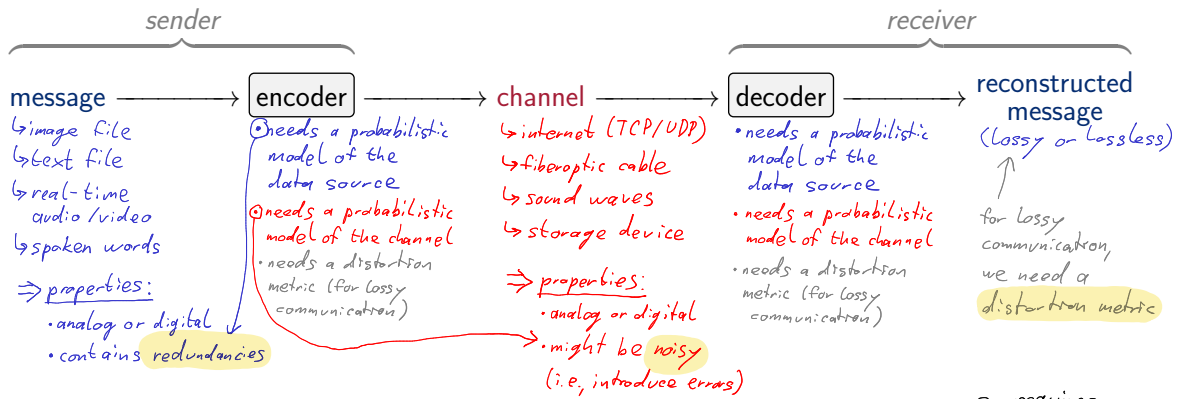 sender
receiver
message
encoder
channel
decoder
reconstructed
message
↳image file
↳text file
↳real-time
audio/video
↳spoken words
⇒ properties:
• analog or digital
• contains redundancies
• needs a probabilistic
model of the
data source
• needs a probabilistic
model of the channel
• needs a distortion
metric (for lossy
communication)
↳internet (TCP/UDP)
↳fiberoptic cable
↳sound waves
↳storage device
⇒ properties:
• analog or digital
• might be noisy
(i.e., introduce errors)
• needs a probabilistic
model of the
data source
• needs a probabilistic
model of the channel
• needs a distortion
metric (for lossy
communication)
(lossy or lossless)
for lossy
communication,
we need a
distortion metric